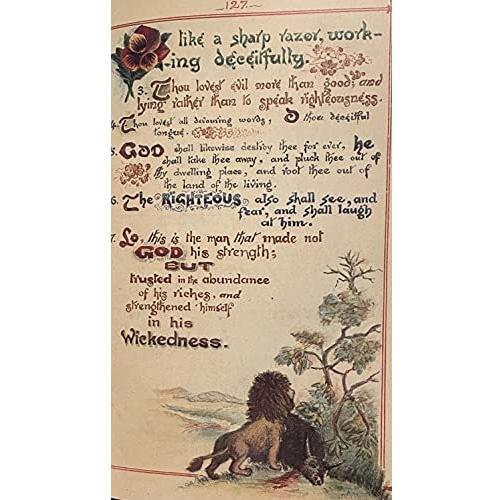 127.
like a sharp razor, work-
ing deceitfully.
3. Thou lovest evil more than good; and
lying rather than to speak righteousness.
4. Thou lovest all devouring words, O thou deceitful
tongue.
5. GOD shall likewise destroy thee for ever, he
shall take thee away, and pluck thee out of
thy dwelling place, and root thee out of
the land of the living.
6. The RIGHTEOUS also shall see, and
fear, and shall laugh
at him.
7. Lo, this is the man that made not
GOD his strength;
BUT
trusted in the abundance
of his riches, and
strengthened himself
in his
Wickedness.